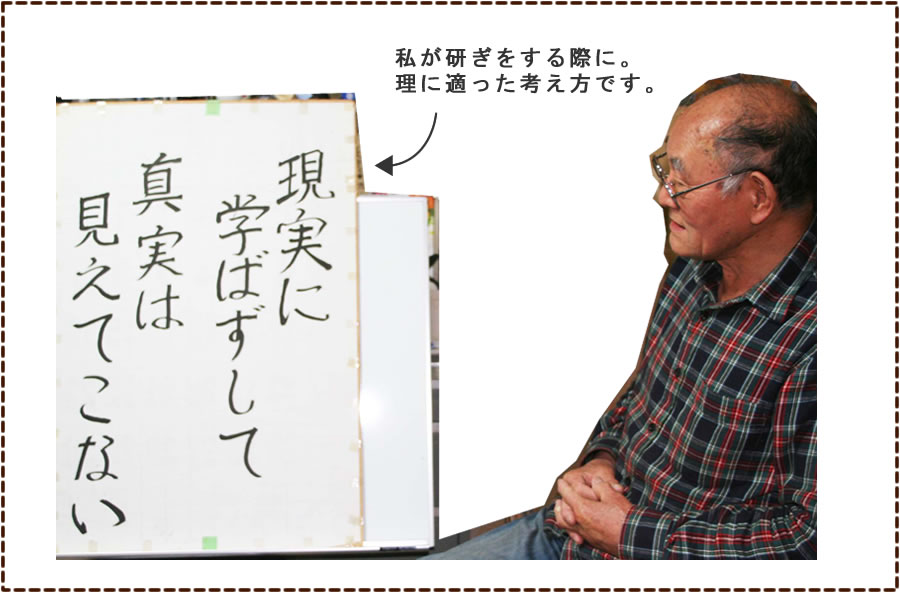 私が研ぎをする際に。
理に適った考え方です。
現実に
学ばずして
真実は
見えてこない